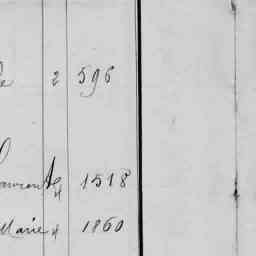 2 596
4 1518
Marie 4 1860